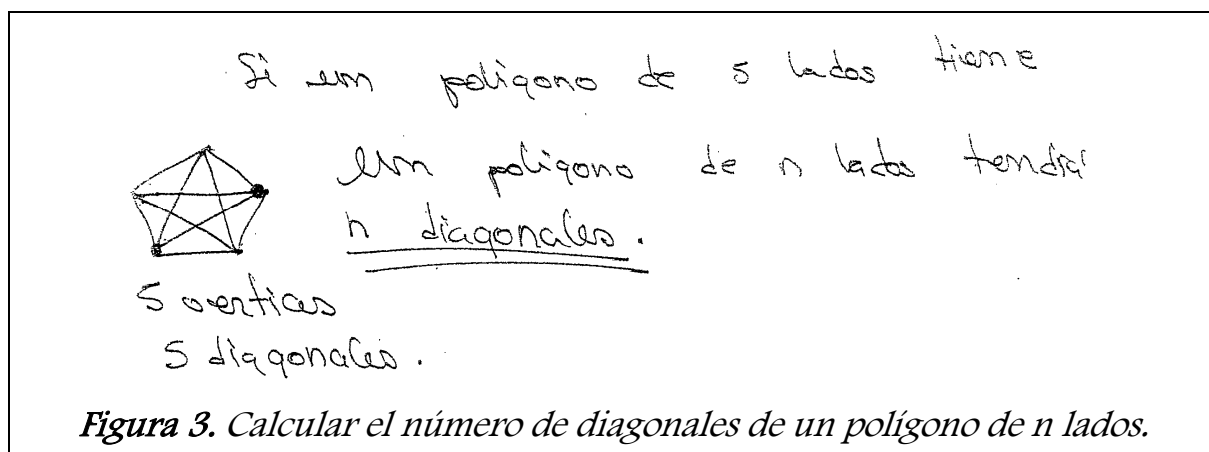 Si un polígono de 5 lados tiene
un polígono de n lados tendrá
n diagonales.
5 vertices
5 diagonales.
Figura 3. Calcular el número de diagonales de un polígono de n lados.